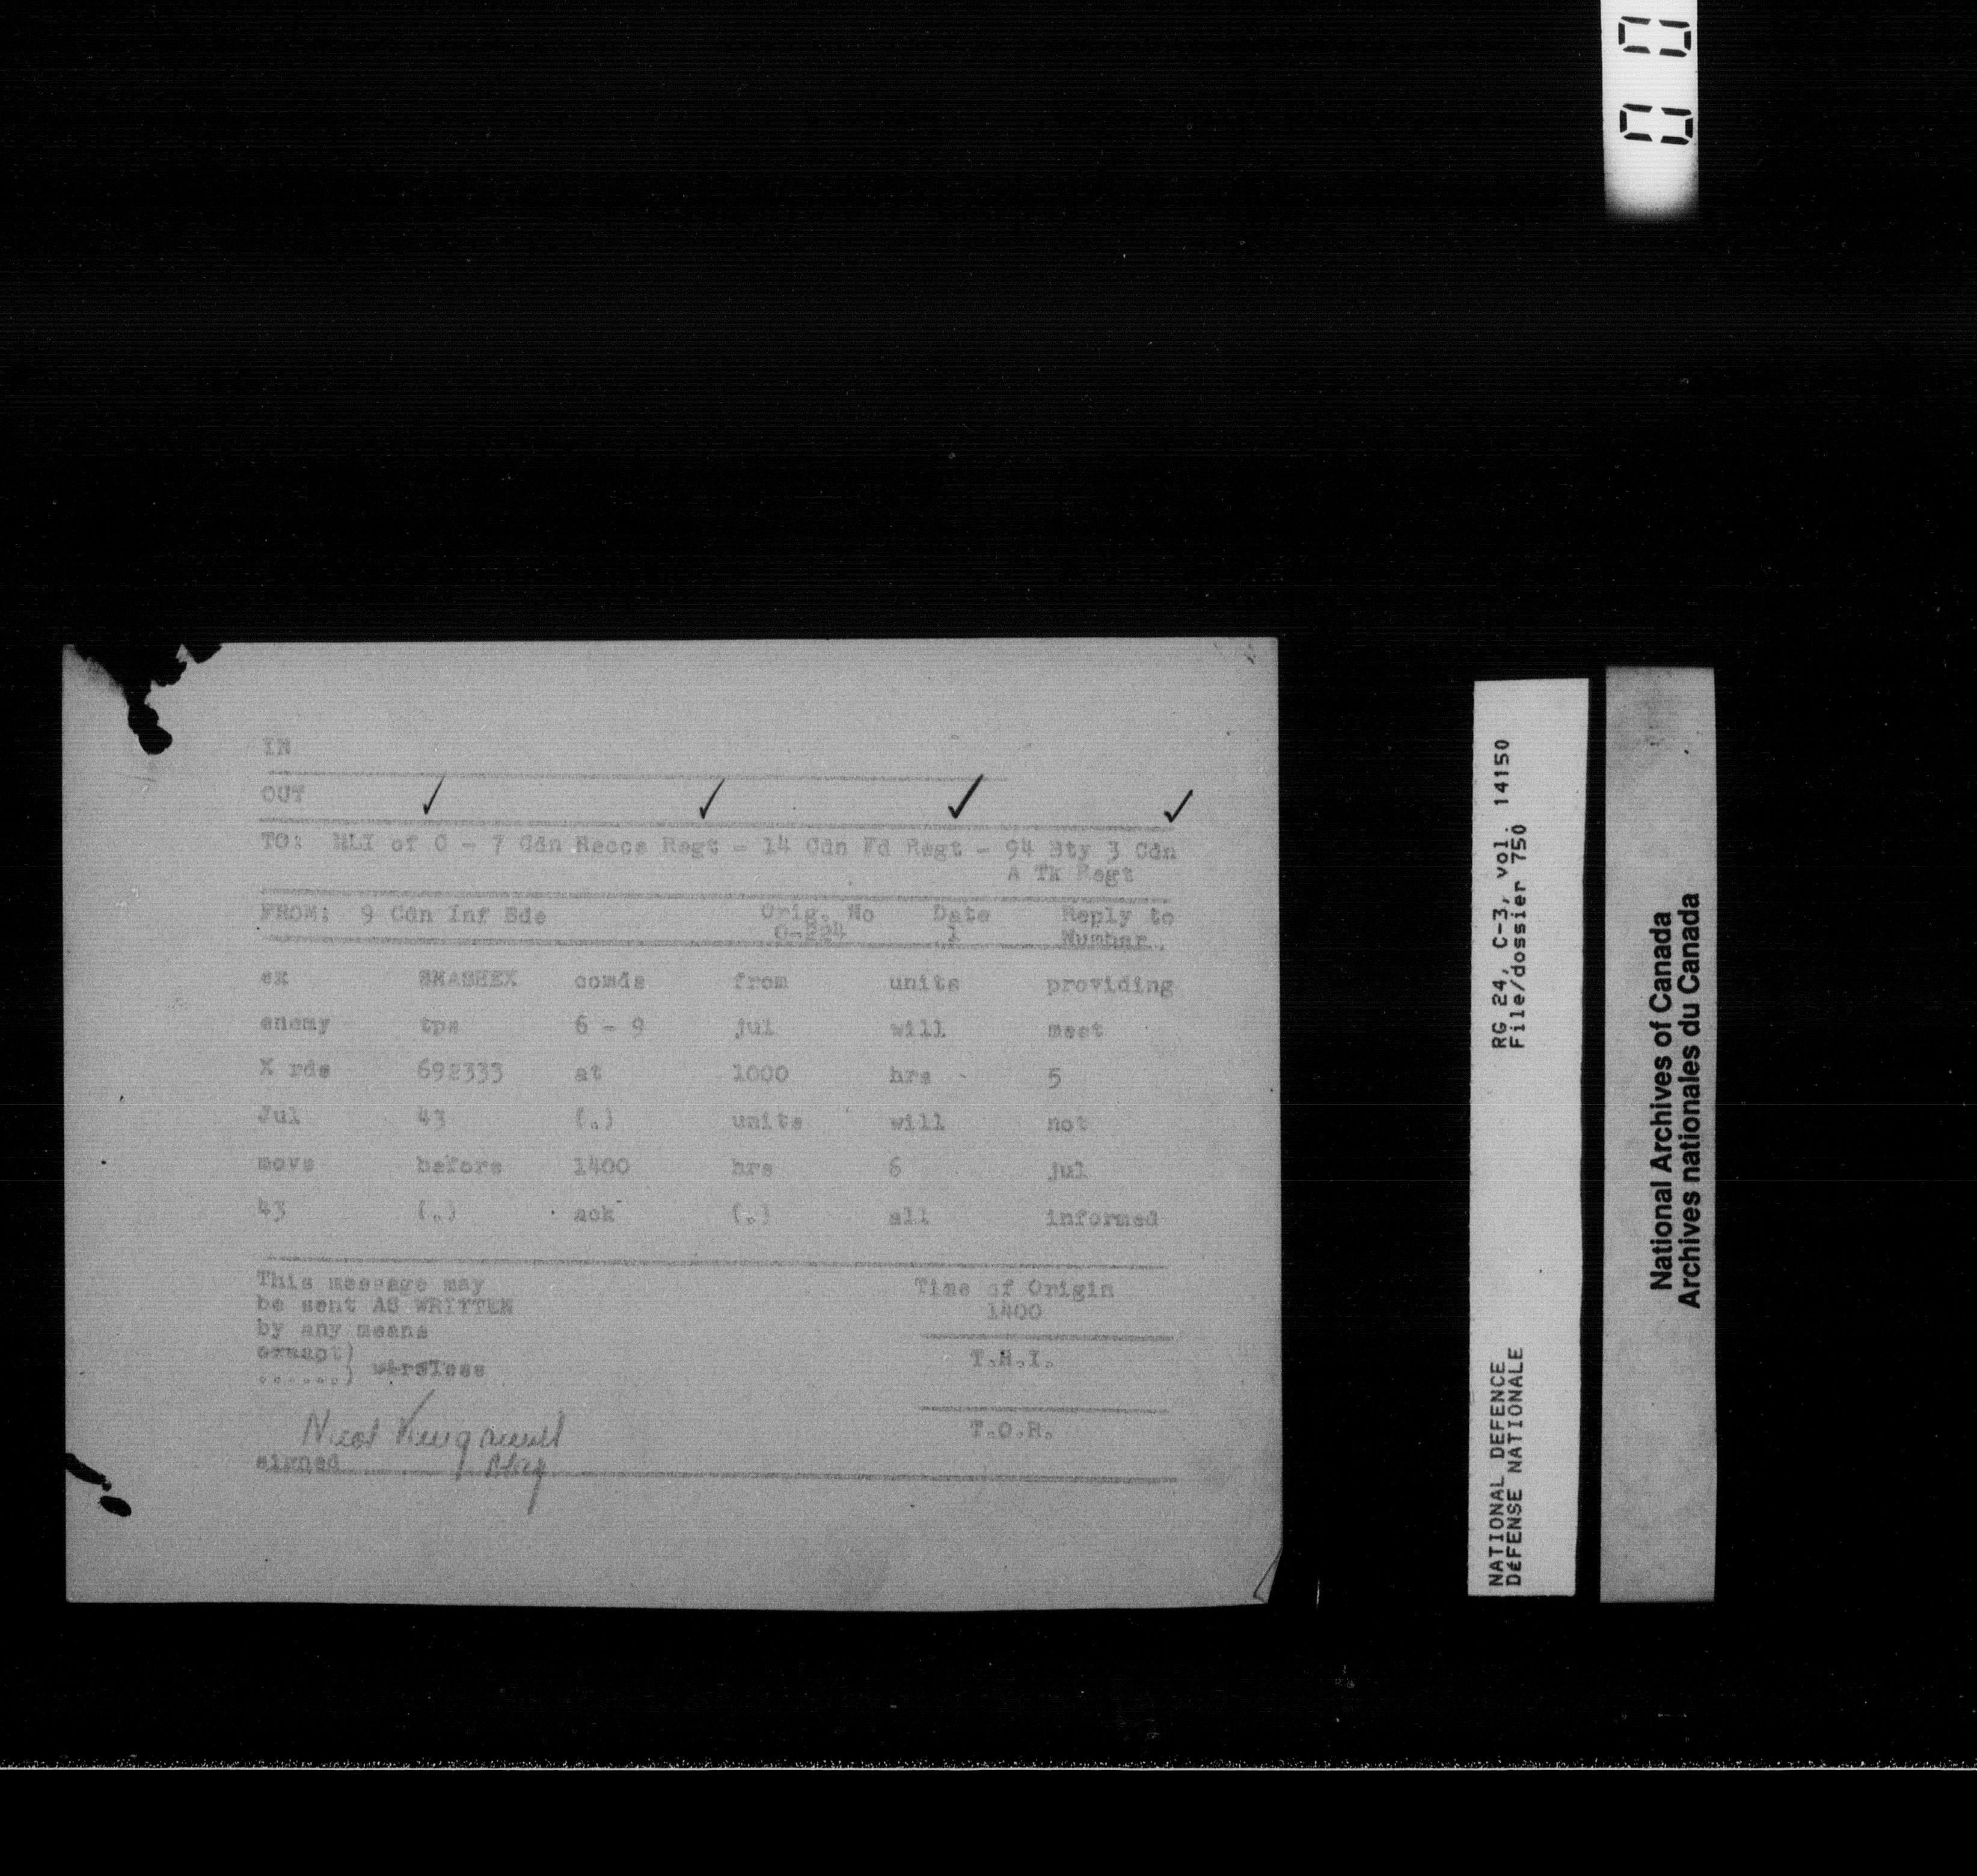 IN
OUT ✓ ✓ ✓ ✓
TO: HLI of C - 7 Cdn Recce Regt - 14 Cdn Fd Regt - 94 Bty 3 Cdn
A Tk Regt
FROM: 9 Cdn Inf Bde Orig. No Date Reply to
1 Number.
ex SMASHEX comds from units providing
enemy tps 6 - 9 jul will meet
X rds 692333 at 1000 hrs 5
Jul 43 (.) units will not
move before 1400 hrs 6 jul
43 (.) ack (.) all informed
This message may
be sent AS WRITTEN
by any means
except)
......) wireless
Time of Origin
1400
T.H.I.
T.O.R.
signed
RG 24, C-3, vol. 14150
File/dossier 750
NATIONAL DEFENCE
DéFENSE NATIONALE
National Archives of Canada
Archives nationales du Canada